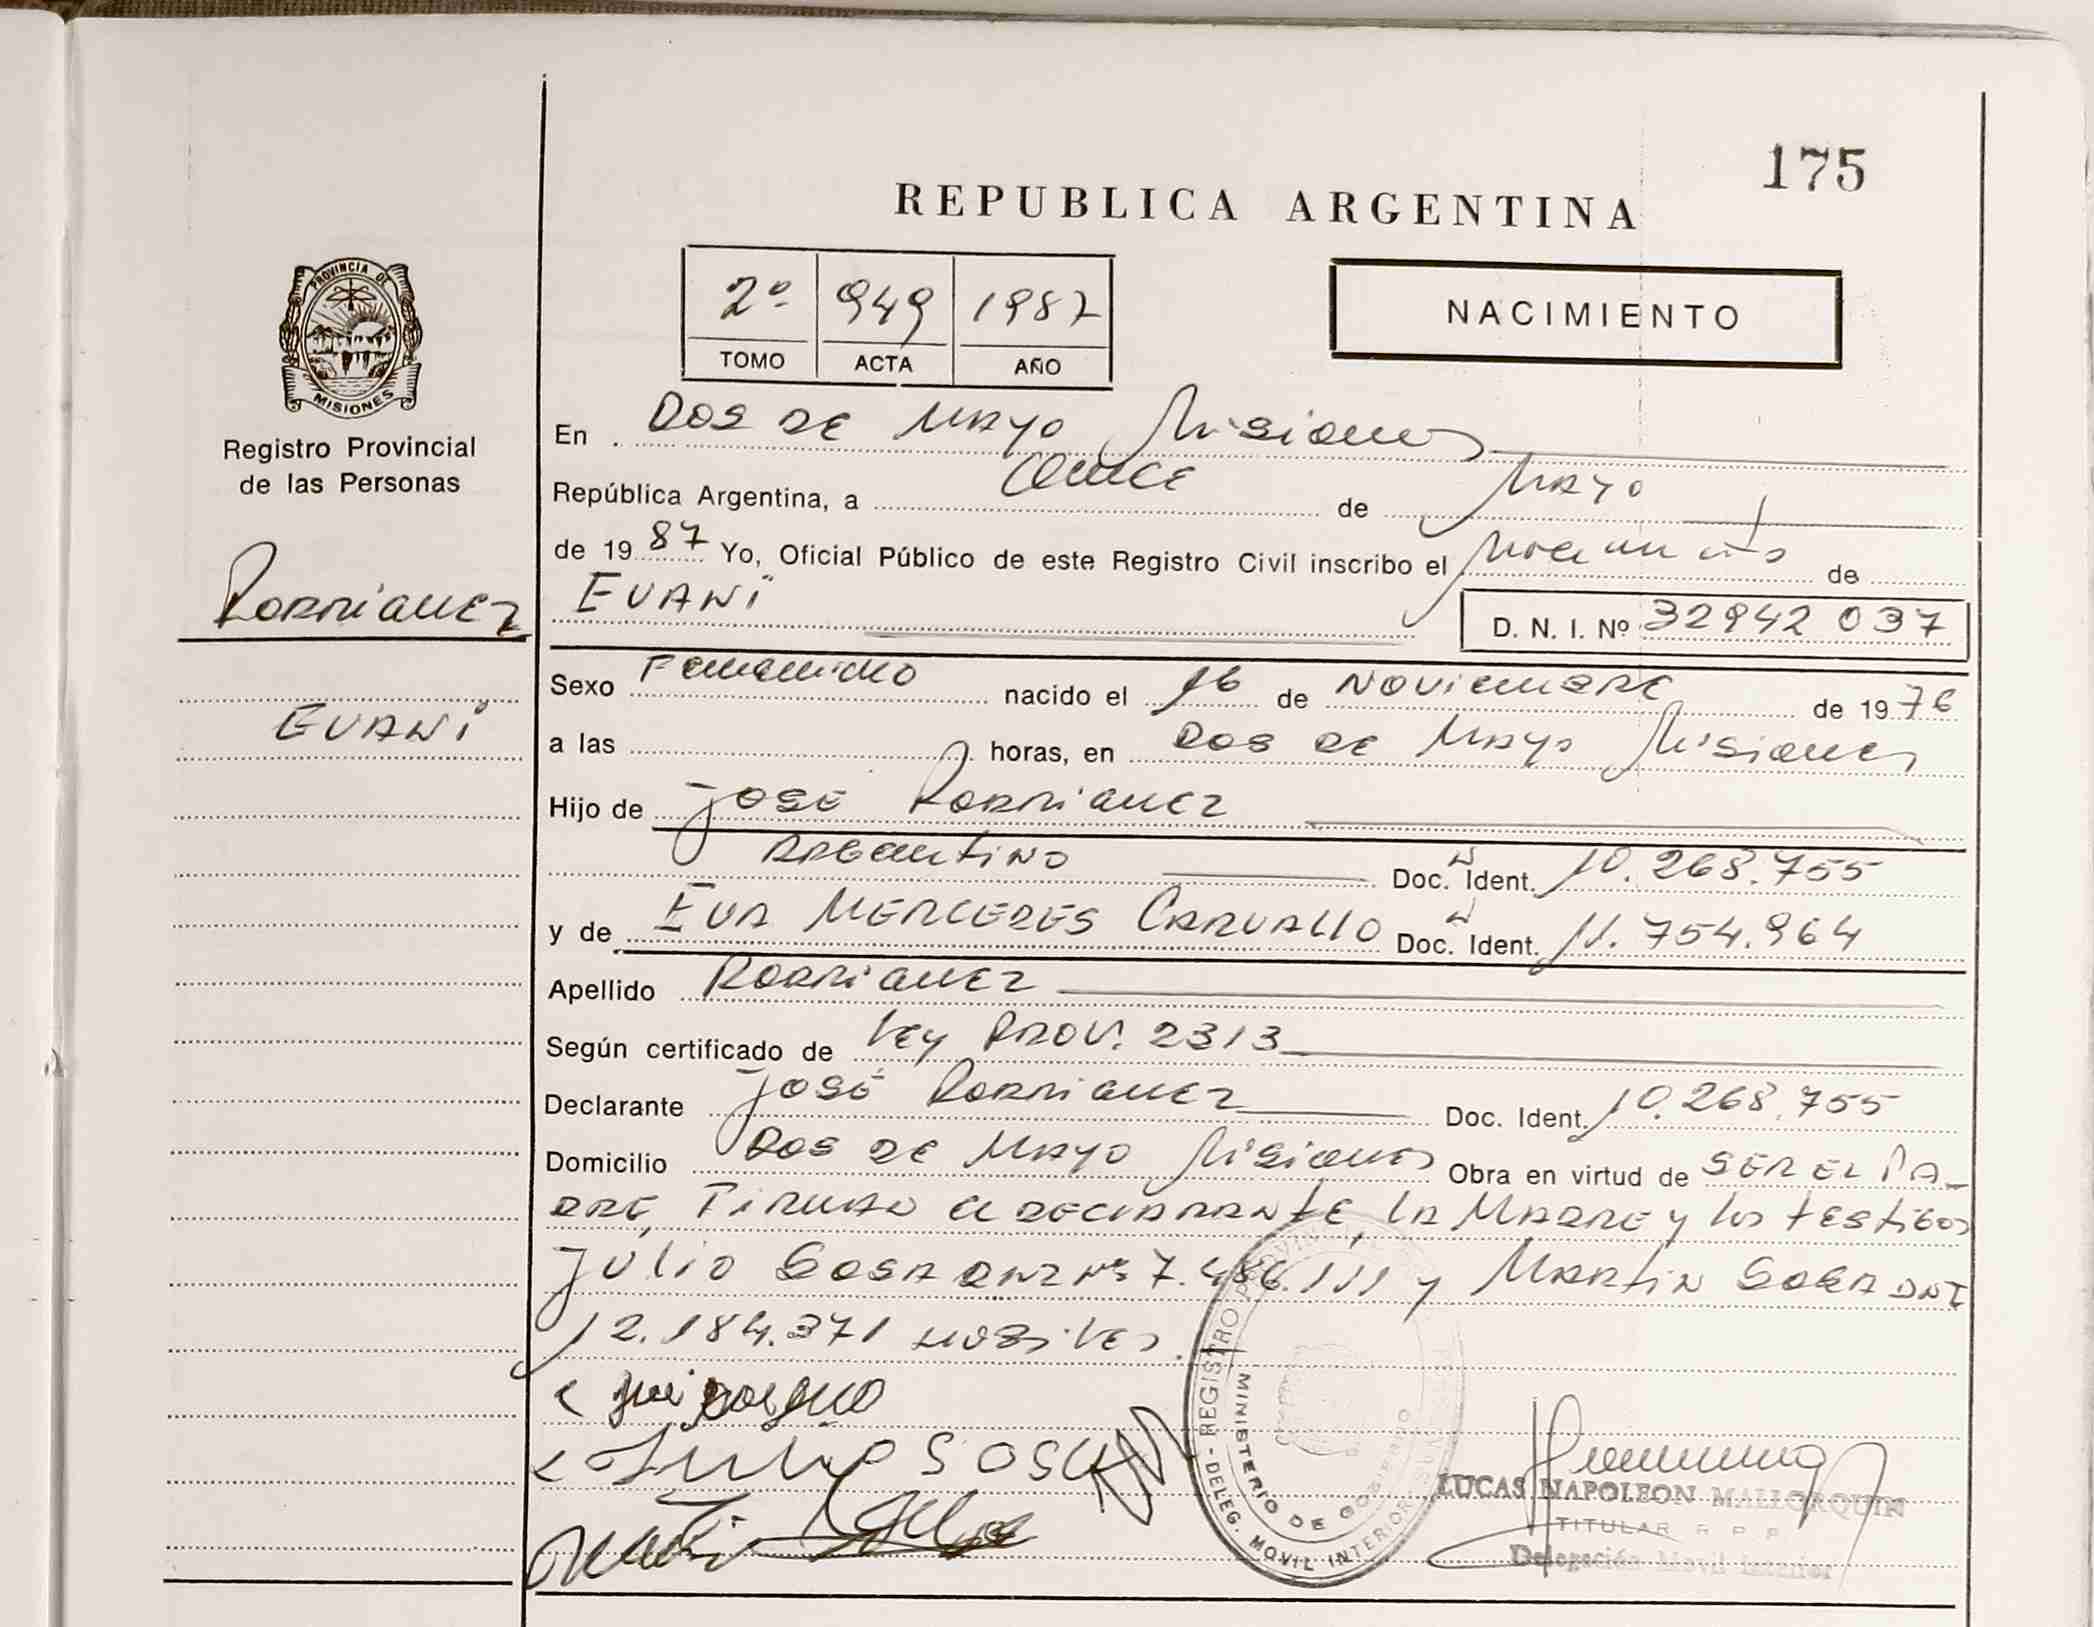 175
REPUBLICA ARGENTINA
2º 949 1987
TOMO ACTA AÑO
NACIMIENTO
PROVINCIA DE
MISIONES
Registro Provincial
de las Personas
RODRIGUEZ
EVANI
En DOS DE MAYO Misiones
República Argentina, a ONCE de MAYO
de 1987 Yo, Oficial Público de este Registro Civil inscribo el Nacimiento de
EVANI D. N. I. Nº 32942 037
Sexo Femenino nacido el 16 de NOVIEMBRE de 1976
a las horas, en DOS DE MAYO Misiones
Hijo de JOSE RODRIGUEZ
ARGENTINO Doc. Ident. 10.268.755
y de EVA MERCEDES CARVALLO Doc. Ident. 11.754.964
Apellido RODRIGUEZ
Según certificado de LEY PROV. 2313
Declarante JOSÉ RODRIGUEZ Doc. Ident. 10.268.755
Domicilio DOS DE MAYO Misiones Obra en virtud de SER EL PA-
DRE, FIRMAN el DECLARANTE, LA MADRE y los testigos
JULIO SOSA DNI Nº 7.486.111 y MARTIN SOSA DNI
12.184.371 HÁBILES.
JULIO SOSA
REGISTRO PROVINCIAL
MINISTERIO DE GOBIERNO
DELEG. MOVIL INTERIOR
LUCAS NAPOLEON MALLORQUIN
TITULAR R P P
Delegación Movil Interior